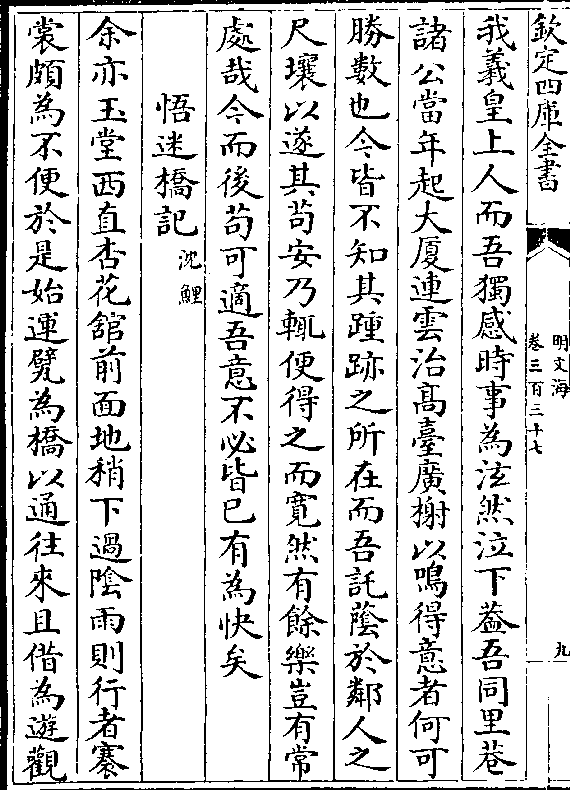 欽定四庫全書
明文海
卷三百三十七
九
我羲皇上人而吾獨感時事為泫然泣下葢吾同里巷
諸公當年起大厦連雲治髙臺廣榭以鳴得意者何可
勝數也今皆不知其踵跡之所在而吾託蔭於鄰人之
尺壤以遂其苟安乃輒便得之而寛然有餘樂豈有常
處哉今而後苟可適吾意不必皆已有為快矣
悟迷橋記沈鯉
余亦玉堂西直杏花舘前面地稍下過陰雨則行者褰
裳頗為不便於是始運甓為橋以通往來且借為遊觀